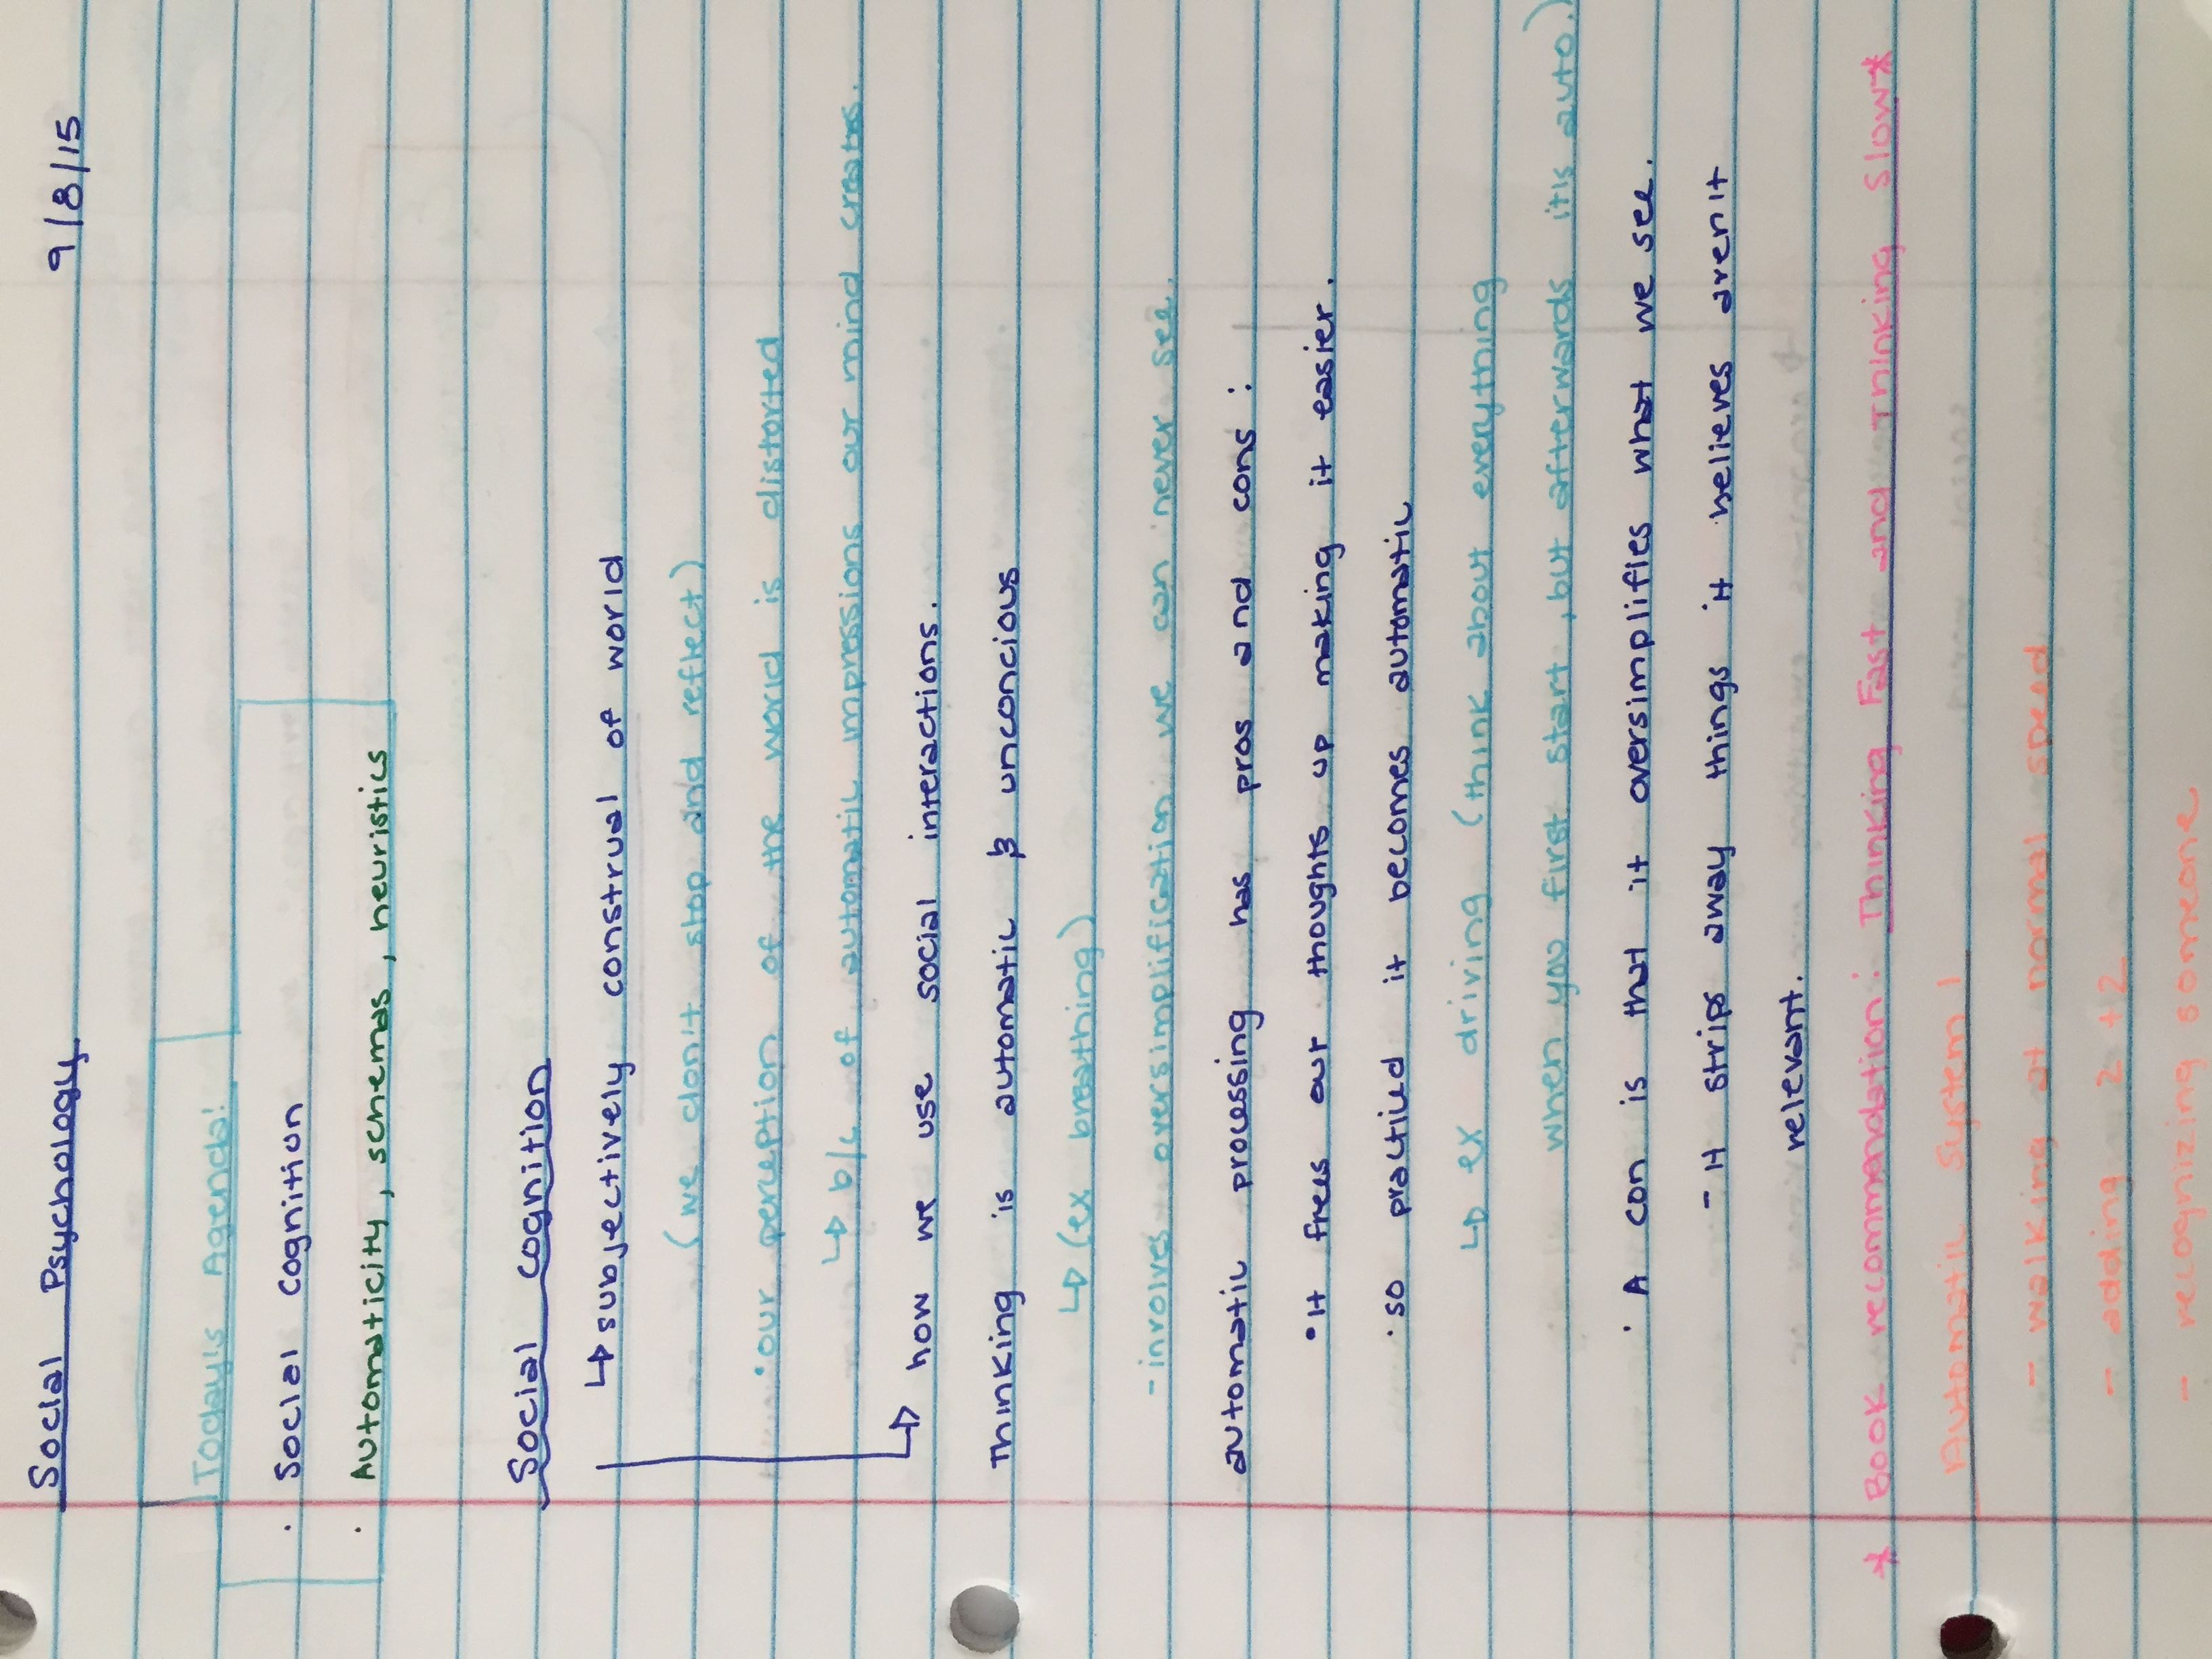 Social Psychology 9/8/15
Today's Agenda:
· Social Cognition
· Automaticity, schemas, heuristics
Social Cognition
↳ subjectively construal of world
(we don't stop and reflect)
· our perception of the world is distorted
↳ b/c of automatic impressions our mind creates.
↳ how we use social interactions.
Thinking is automatic & unconcious
↳ (ex breathing)
- involves oversimplification we can never see.
automatic processing has pros and cons:
· It frees our thoughts up making it easier.
· so practiced it becomes automatic
↳ ex driving (think about everything
when you first start, but afterwards it's auto.)
· A con is that it oversimplifies what we see.
- It strips away things it believes aren't
relevant.
* Book recommendation: Thinking Fast and Thinking Slow*
Automatic System 1
- walking at normal speed
- adding 2+2
- recognizing someone